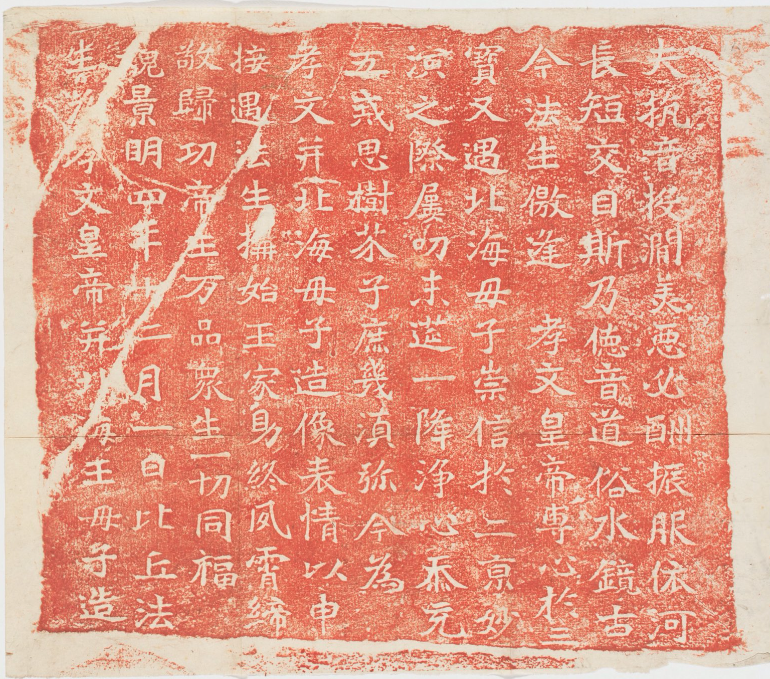 夫抗音投澗美惡必酬振服依河
長短交目斯乃德音道俗水鏡古
今法生儌逢 孝文皇帝專心於三
寶又遇北海母子崇信於二京妙
演之際屢叨末莚一降淨心忝充
五戒思樹芥子庶幾湏弥今為
孝文并北海母子造像表情以申
接遇法生搆始王家助終夙霄締
敬歸功帝王万品眾生一切同福
魏景明四年十二月一日比丘法
生為孝文皇帝并北海王母子造